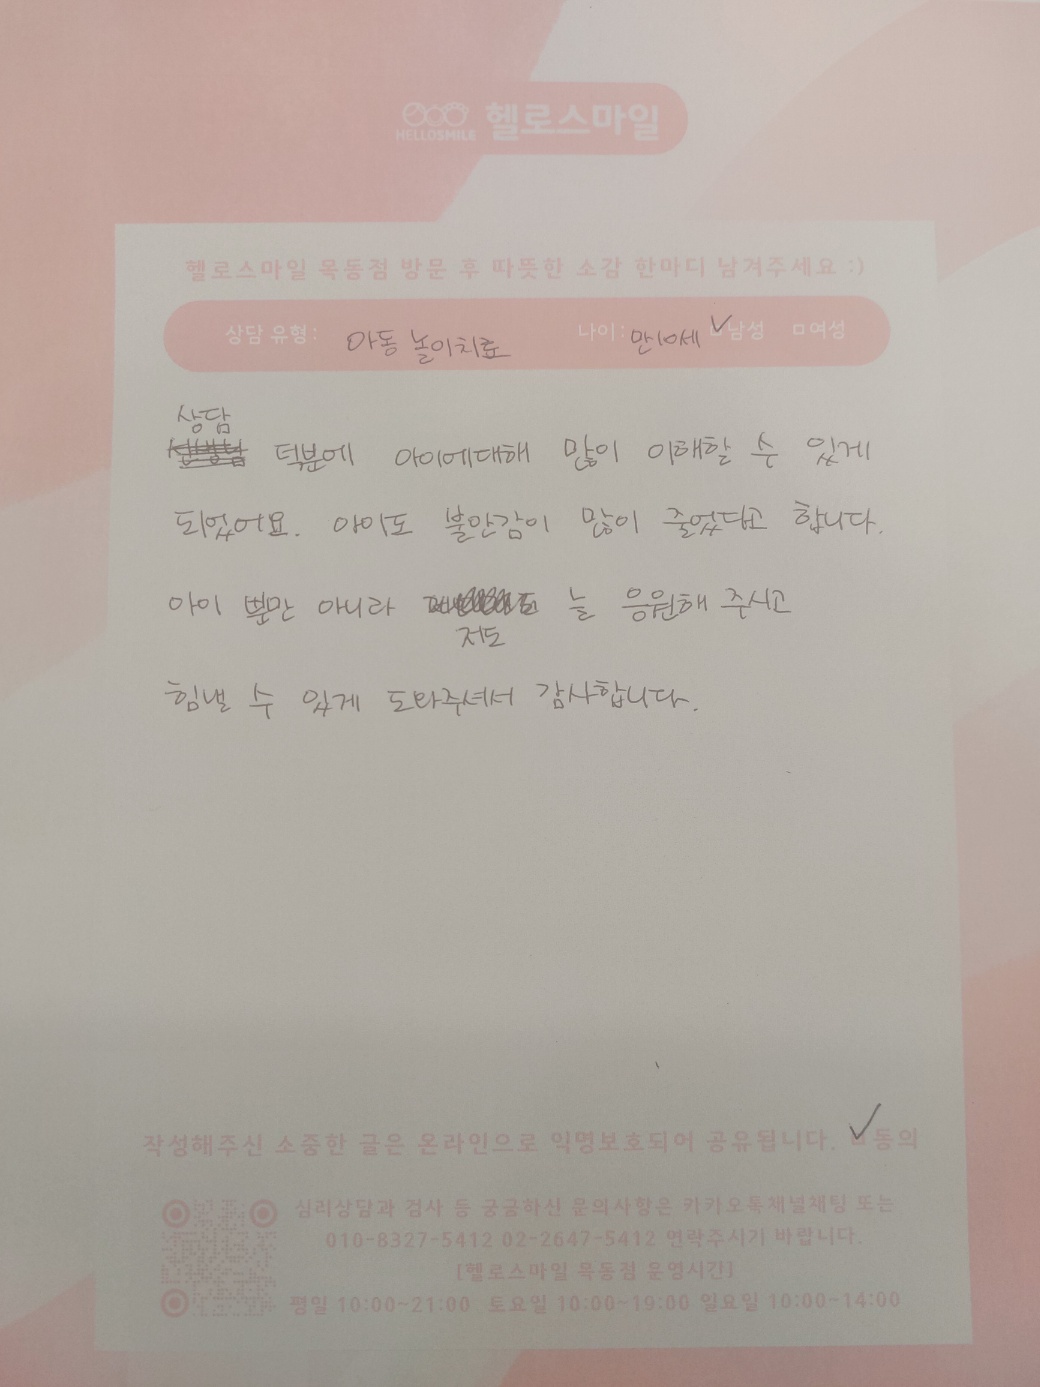 HELLOSMILE 헬로스마일
헬로스마일 목동점 방문 후 따뜻한 소감 한마디 남겨주세요 :)
상담 유형: 아동 놀이치료 나이: 만10세 ✓남성 □여성
상담
턱분에 아이에대해 많이 이해할 수 있게
되었어요. 아이도 불안감이 많이 줄었다고 합니다.
아이 뿐만 아니라 늘 응원해 주시고
저도
힘낼 수 있게 도와주셔서 감사합니다.
작성해주신 소중한 글은 온라인으로 익명보호되어 공유됩니다. ✓동의
심리상담과 검사 등 궁금하신 문의사항은 카카오톡채널채팅 또는
010-8327-5412 02-2647-5412 연락주시기 바랍니다.
[헬로스마일 목동점 운영시간]
평일 10:00~21:00 토요일 10:00~19:00 일요일 10:00~14:00